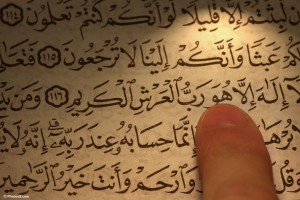 لَّبِثْتُمْ إِلَّا قَلِيلًا لَّوْ أَنَّكُمْ كُنتُمْ تَعْلَمُونَ ١١٤
عَبَثًا وَأَنَّكُمْ إِلَيْنَا لَا تُرْجَعُونَ ١١٥ فَتَعَـٰلَى
إِلَـٰهَ إِلَّا هُوَ رَبُّ الْعَرْشِ الْكَرِيمِ ١١٦ وَمَن
فَإِنَّمَا حِسَابُهُ عِندَ رَبِّهِ إِنَّهُ لَا
وَارْحَمْ وَأَنتَ خَيْرُ الرَّاحِمِينَ